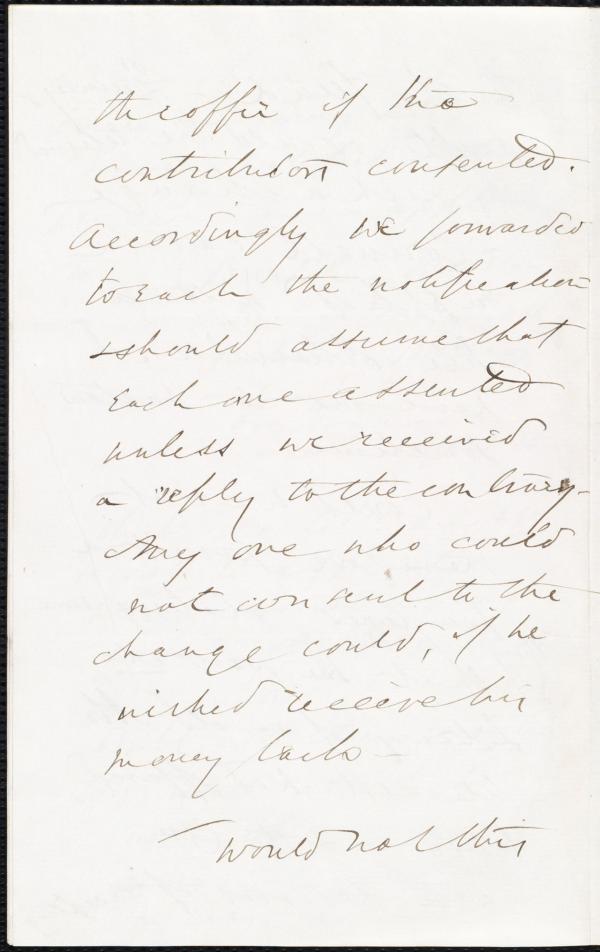 the offer if the
contributors consented.
Accordingly we forwarded
to each the notification
& should assume that
Each one assented
unless we received
a reply to the contrary–
Any one who could
not consent to the
change could, if he
wished receive his
money back –
Would not this